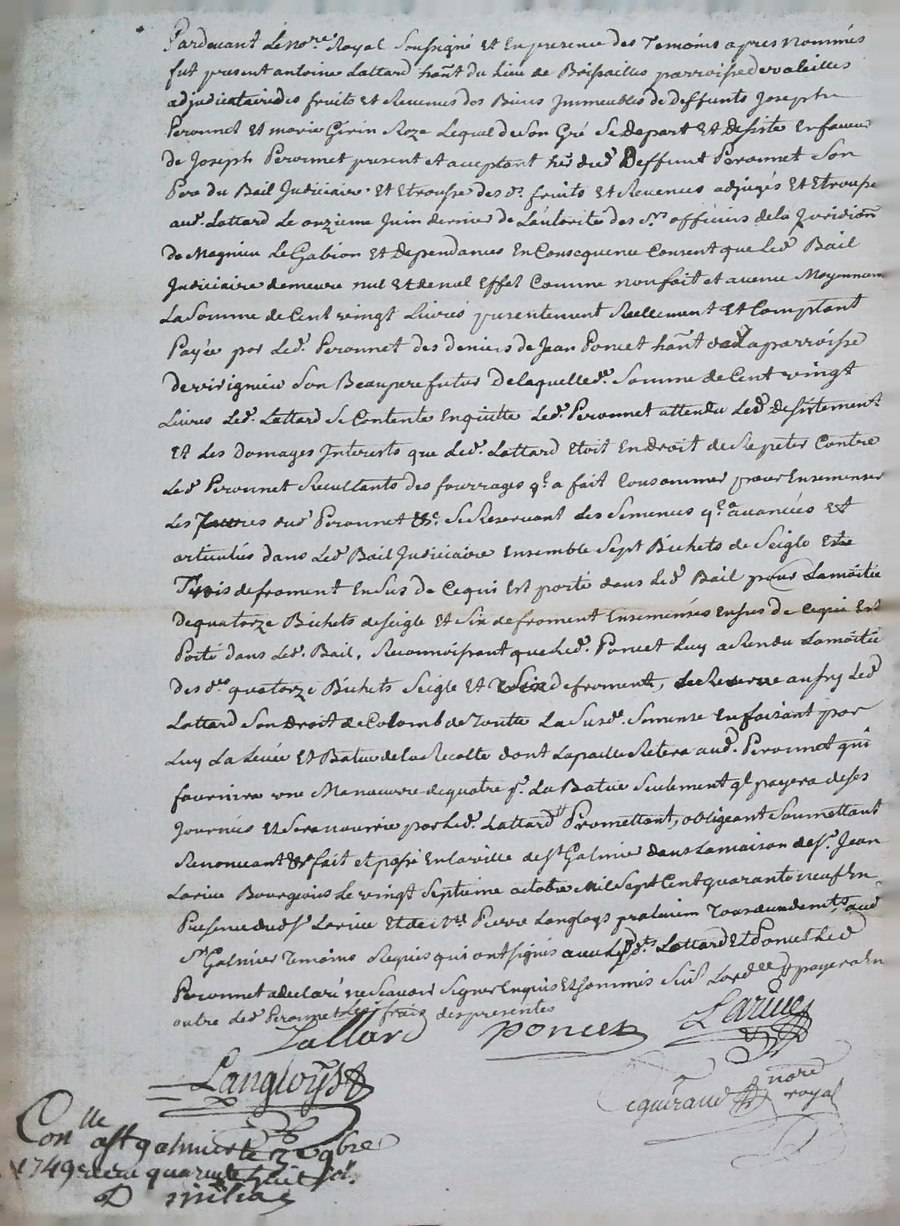 Pardevant Le no.re Royal Soussigné et En presence des Temoins apres nommés
fut present antoine Lattard ha~nt du Lieu de Brissailles parroisse de valeilles
adjudicataire des fruits et Revenus des Biens Immeubles de deffunts Joseph
Peronnet et marie Gérin Roze Lequel de Son Gré Se depart Et desiste En faveur
de Joseph Peronnet present et acceptant her. dud. Deffunt Peronnet Son
Pere du Bail Judiciaire et Etrousse des d. fruits et Revenues adjugés et Etroussé
aud. Lattard Le onzieme Juin dernier de Lautorité des Srs officiers de la Juridion
de Magnieu Le Gabion Et dependances En Consequence Consent que Led. Bail
Judiciaire demeure nul et de nul Effet Comme non fait et avenu Moyennant
La Somme de Cent vingt Livres presentement Reellement et Comptant
Payée por Led. Peronnet des deniers de Jean Poncet ha~nt La parroisse
de virignieu Son Beaupere futur de laquelle d. Somme de Cent vingt
Livres Led. Lattard Se Contente En quitte Led. Peronnet attendu Led. desistement
Et Les Domages Interests que Led. Lattard Etoit En droit de Repeter Contre
Led. Peronnet Resultants des fourrages ql. a fait Consommer pour Ensemenser
Les Terres dud. Peronnet &c. Se Reservant Les Semences ql. a avancées et
articulés dans Led. Bail Judiciaire Ensemble Sept Bichets de Seigle Et
Trois de froment En Sus de Cequi Est porté dans Led. Bail pour La moitié
de quatorze Bichets de Seigle Et Six de froment Ensemensés En sus de Cequi Est
Porté dans Led. Bail, Reconnoissant que Led. Poncet Luy a Rendu La moitié
des d. quatorze Bichets Seigle Et Six de froment, Se Reserve aussy Led.
Lattard Son Droit de Colomb de Toutte La Susd. Semense En faisant par
Luy La Levée Et Batue de la Recolte dont La paille Restera aud. Peronnet qui
fournira une Manoeuvre de quatre pr. La Batue Seulement ql. payera de ses
Journées et Sera nourrie par Led. Lattard Promettant, obligeant Soumettant
Renoncant &c. fait et passé En La ville de St Galmier dans La maison de Sr. Jean
Larive Bourgeois Le vingt Septieme octobre Mil Sept Cent quarante neuf En
Presence dud. Sr Larive Et de Pierre Langloys praticien Tous deux demts. aud.
St Galmier Temoins Requis qui ont signés avec Lesd. Lattard Et Poncet Led.
Peronnet a declaré ne Scavoir Signer Enquis Et Sommé payera En
outre Led. Peronnet Les frais des presentes
Lattard Poncet Larive
Langloys
nore
royal
Conlle a St galmier le 9bre
1749 recu quarante huit sol.